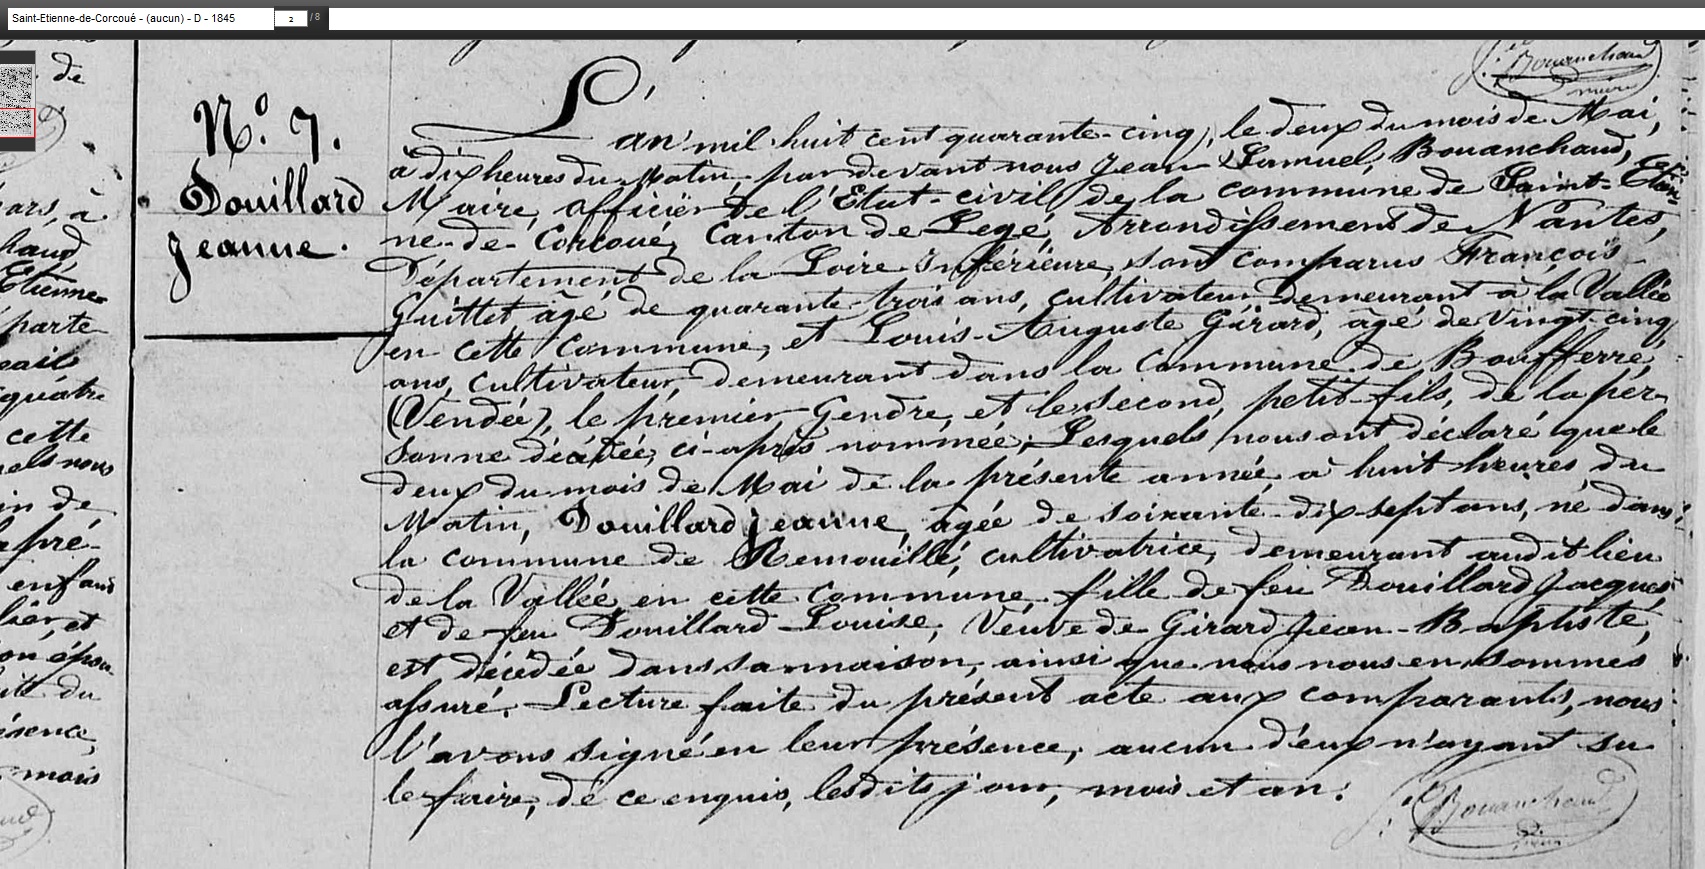 Saint-Etienne-de-Corcoué - (aucun) - D - 1845
2 / 8
Bouanchaud
maire
de
N.º 7.
Douillard
Jeanne.
L'an mil huit cent quarante-cinq, le deux du mois de Mai,
à dix heures du Matin, par devant nous Jean Samuel Bouanchaud,
Maire, officier de l'Etat-civil de la commune de Saint-Etien-
ne-de-Corcoué, Canton de Legé, Arrondissement de Nantes,
Département de la Loire Inférieure, sont comparus François
Guittet âgé de quarante-trois ans, cultivateur, demeurant à la Vallée
en cette Commune, et Louis-Auguste Girard, âgé de vingt-cinq
ans, cultivateur, demeurant dans la Commune de Boufferré,
(Vendée), le premier Gendre, et le second, petit-fils, de la per-
sonne décédée, ci-après nommée; Lesquels nous ont déclaré que le
deux du mois de Mai de la présente année à huit heures du
Matin, Douillard Jeanne, âgée de soixante-dix sept ans, né dans
la commune de Remouillé, cultivatrice, demeurant audit lieu
de la Vallée, en cette Commune, fille de feu Douillard Jacques,
et de feu Douillard Louise, Veuve de Girard Jean-Baptiste,
est décédée dans sa maison, ainsi que nous nous en sommes
assuré. Lecture faite du présent acte aux comparants, nous
l'avons signé en leur présence, aucun d'eux n'ayant su
le faire, de ce enquis, lesdits jour, mois et an.
Bouanchaud
maire
ars, à
haud,
Etienne-
parte-
quatre
cette
els nous
in de
pré-
enfans
et
on épou
du
ésence,
mois